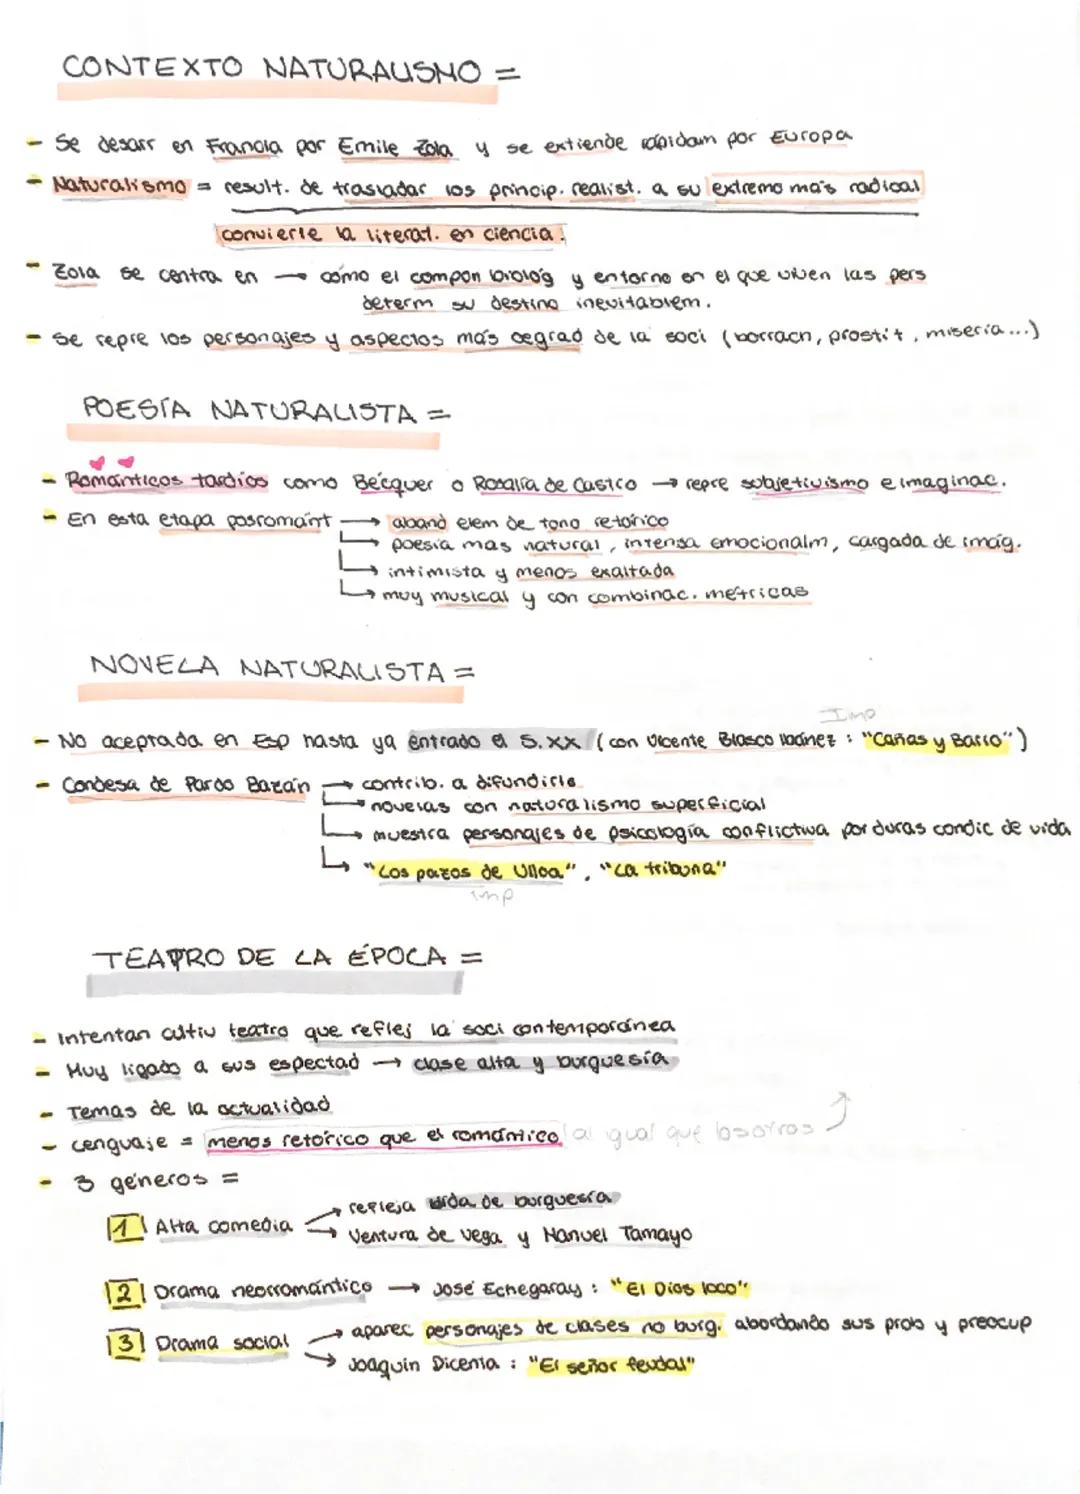 CONTEXTO NATURALISMO =
- Se desarr en Francia por Emile Zola y se extiende rápidam por Europa
- Naturalismo = result. de trasladar los princip. realist. a su extremo más radical
convierte la literat. en ciencia.
- Zola se centra en → cómo el compon biológ y entorno en el que viven las pers
determ su destino inevitablem.
- Se repre los personajes y aspectos más degrad de la soci (borrach, prostit, miseria...)
POESÍA NATURALISTA =
- Románticos tardíos como Bécquer o Rosalía de Castro → repre subjetivismo e imaginac.
- En esta etapa posrománt → aband elem de tono retórico
→ poesía mas natural, intensa emocionalm, cargada de imág.
→ intimista y menos exaltada
→ muy musical y con combinac. métricas
NOVELA NATURALISTA =
Imp
- No aceptada en Esp hasta ya entrado el S.XX (con Vicente Blasco Ibáñez : "Cañas y Barro")
- Condesa de Pardo Bazán → contrib. a difundirla
→ novelas con naturalismo superficial
→ muestra personajes de psicología conflictiva por duras condic de vida
→ "Los pazos de Ulloa", "La tribuna"
imp
TEATRO DE LA ÉPOCA =
- Intentan cultiv teatro que reflej la soci contemporánea
- Muy ligado a sus espectad → clase alta y burguesía
- Temas de la actualidad
- Lenguaje = menos retórico que el romántico al igual que los otros
- 3 géneros =
1 Alta comedia → refleja vida de burguesía
→ Ventura de Vega y Manuel Tamayo
2 Drama neorromántico → José Echegaray : "El Dios loco"
3 Drama social → aparec personajes de clases no burg. abordando sus prob y preocup
→ Joaquín Dicenta : "El señor feudal"